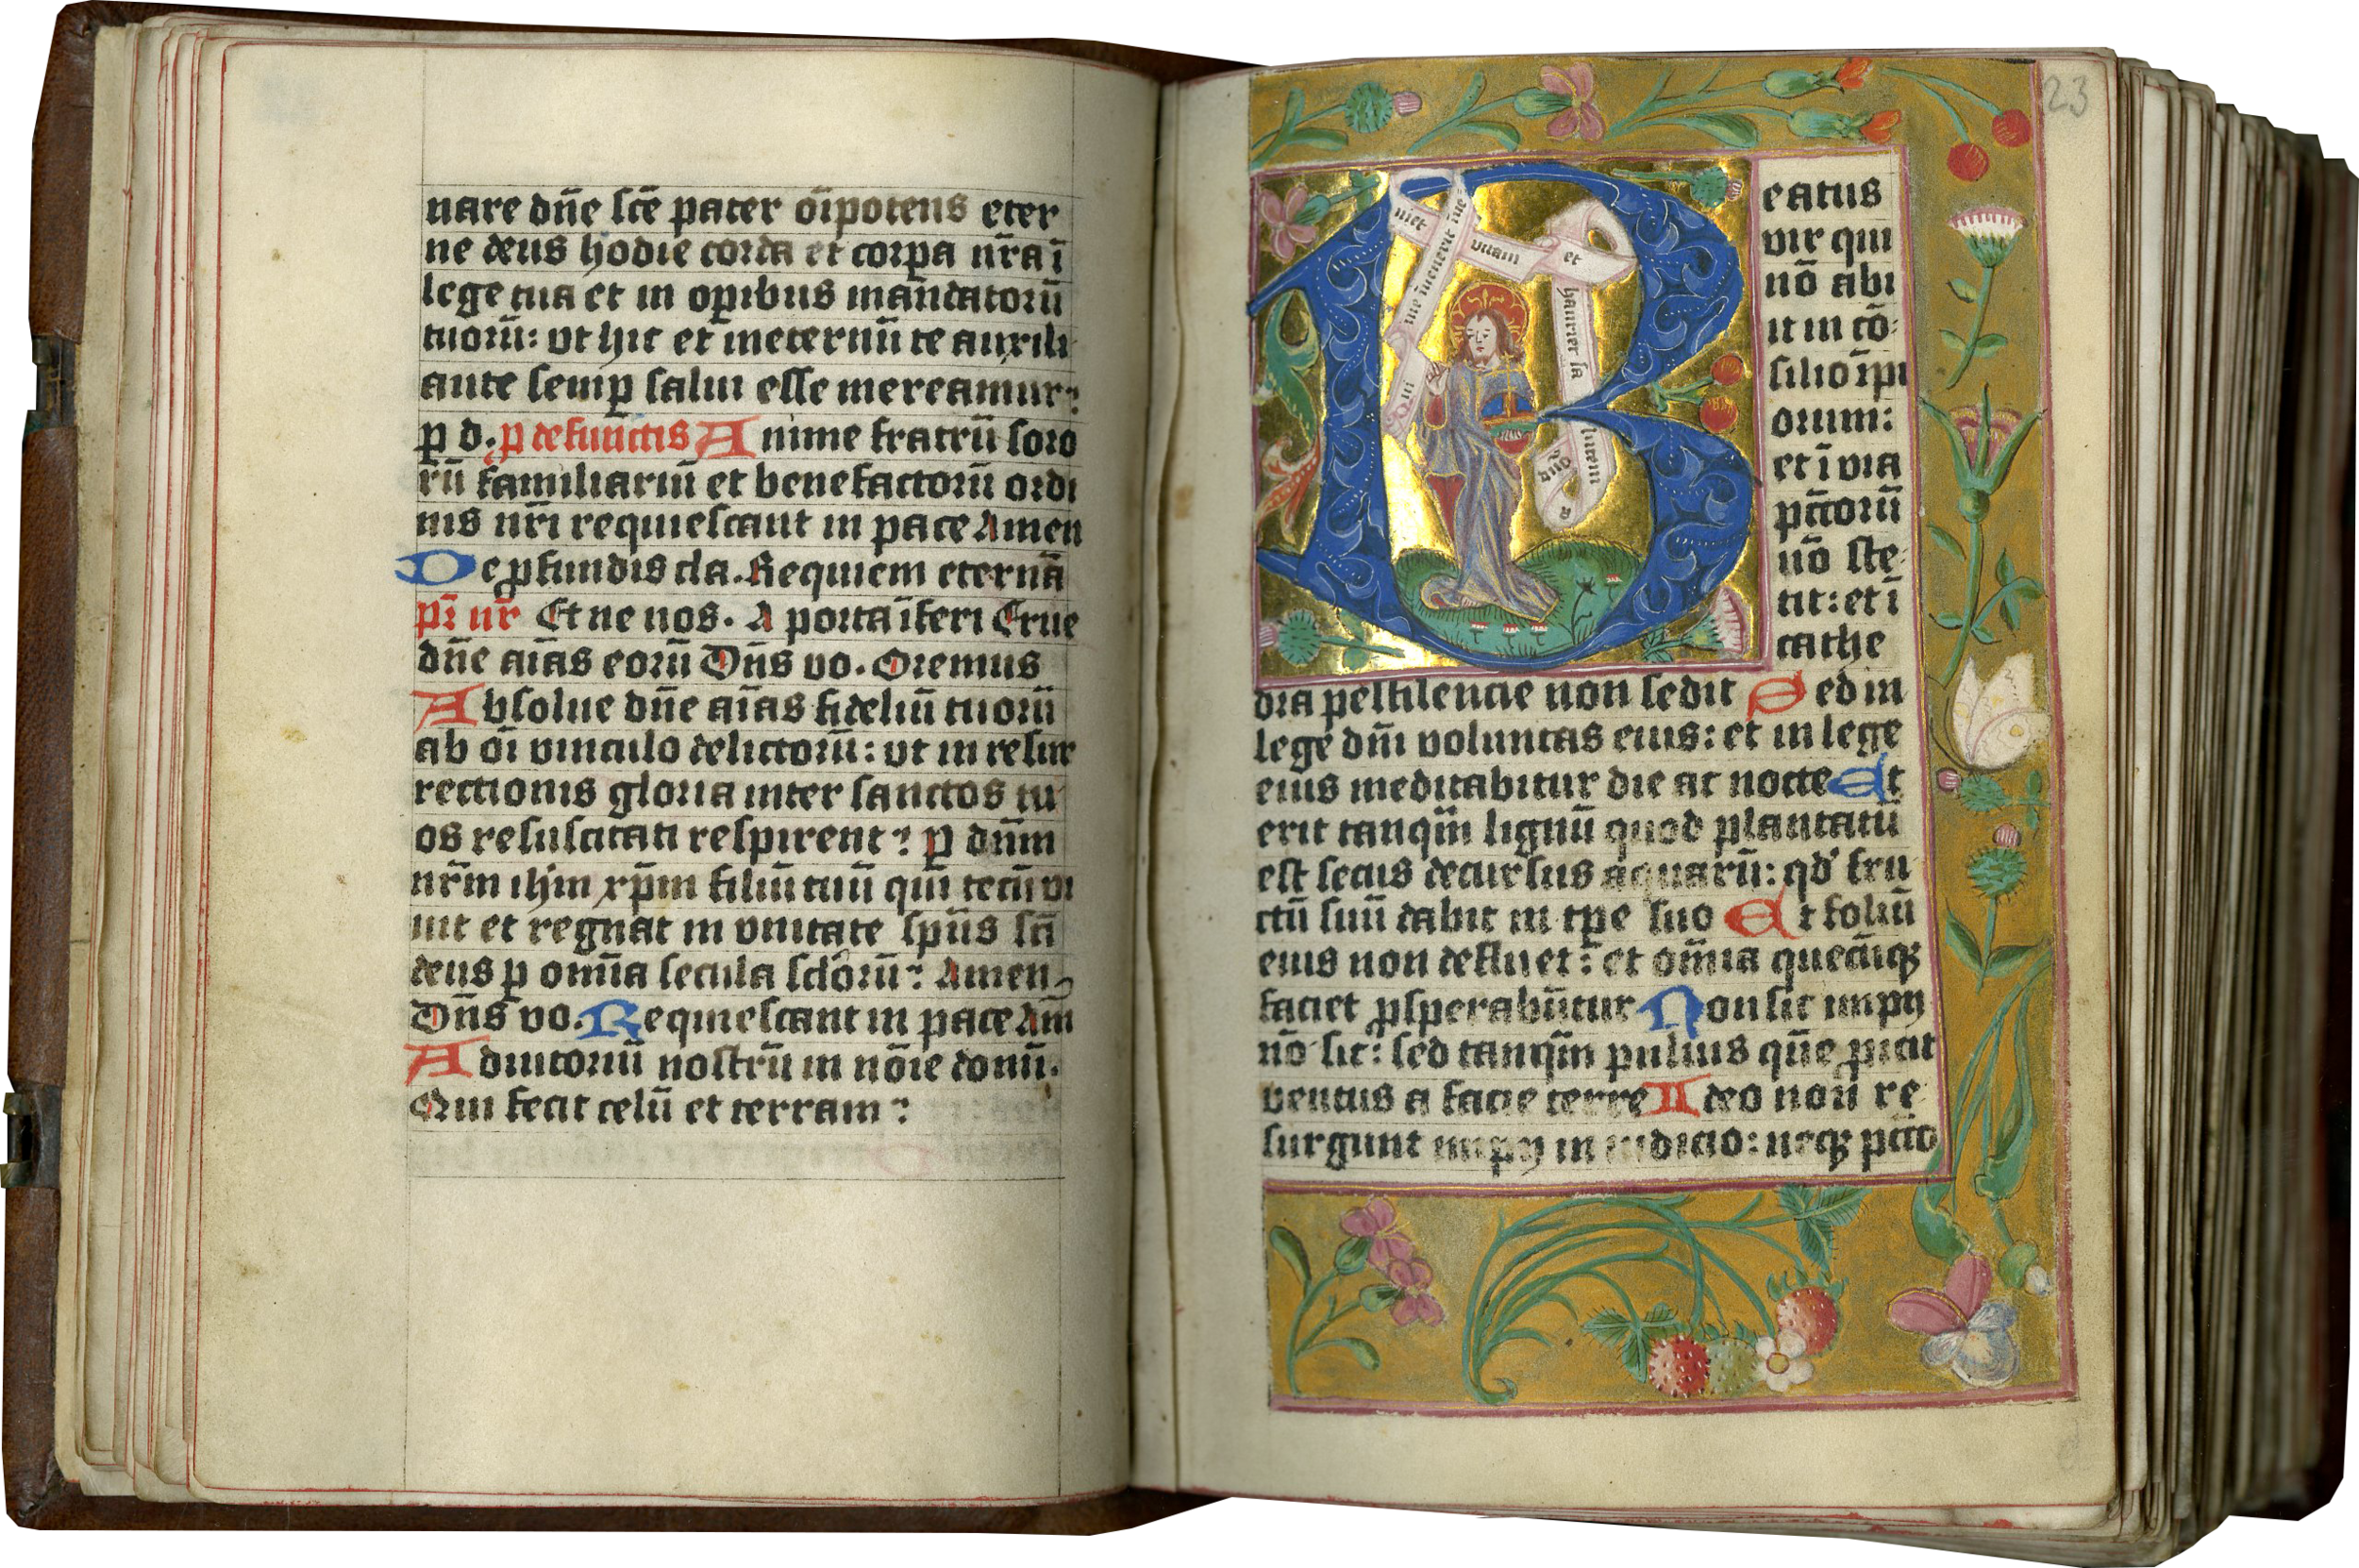 nare dn̄e sc̄e pater oīpotens eter
ne deus hodie corda et corꝑa nr̄a ī
lege tua et in oꝑibus mandatorū
tuorū: vt hic et ineternū te auxili
ante semꝑ salui esse mereamur:
ꝑ d. ꝑ defunctis Anime fratrū soro
rū familiariū et benefactorū ordi
nis nr̄i requiescant in pace Amen
De ꝓfundis cla. Requiem eternā
pr̄ nr̄ Et ne nos. A porta īferi Erue
dn̄e aīas eorū Dn̄s vo. Oremus
Absolue dn̄e aīas fideliū tuorū
ab oī vinculo delictorū: vt in resur
rectionis gloria inter sanctos tu
os resuscitati respirent: ꝑ dn̄m
nr̄m ihm̄ xp̄m filiū tuū qui tecū vi
uit et regnat in vnitate spūs sc̄i
deus ꝑ omīa secula sclorū: Amen
Dn̄s vo. Requiescant in pace Am̄
Adiutoriū nostrū in nōīe domī.
Qui fecit celū et terram:
23
Qui me inuenerit inueniet vitam et hauriet salutem a
Beatus
vir qui
nō abi
it in cō
silio īpi
orum:
et ī via
pc̄corū
nō ste
tit: et ī
cathe
dra pestilencie non sedit Sed in
lege dn̄i voluntas eius: et in lege
eius meditabitur die ac nocte Et
erit tanqm̄ lignū quod plantatū
est secus decursus aquarū: qd' fru
ctū suū dabit in tp̄e suo Et foliū
eius non defluet: et om̄ia quecūqꝫ
faciet ꝓsperabūtur Non sic impij
nō sic: sed tanqm̄ puluis que ꝓicit
ventus a facie terre Ideo non re
surgunt impij in iudicio: neqꝫ pcc̄o